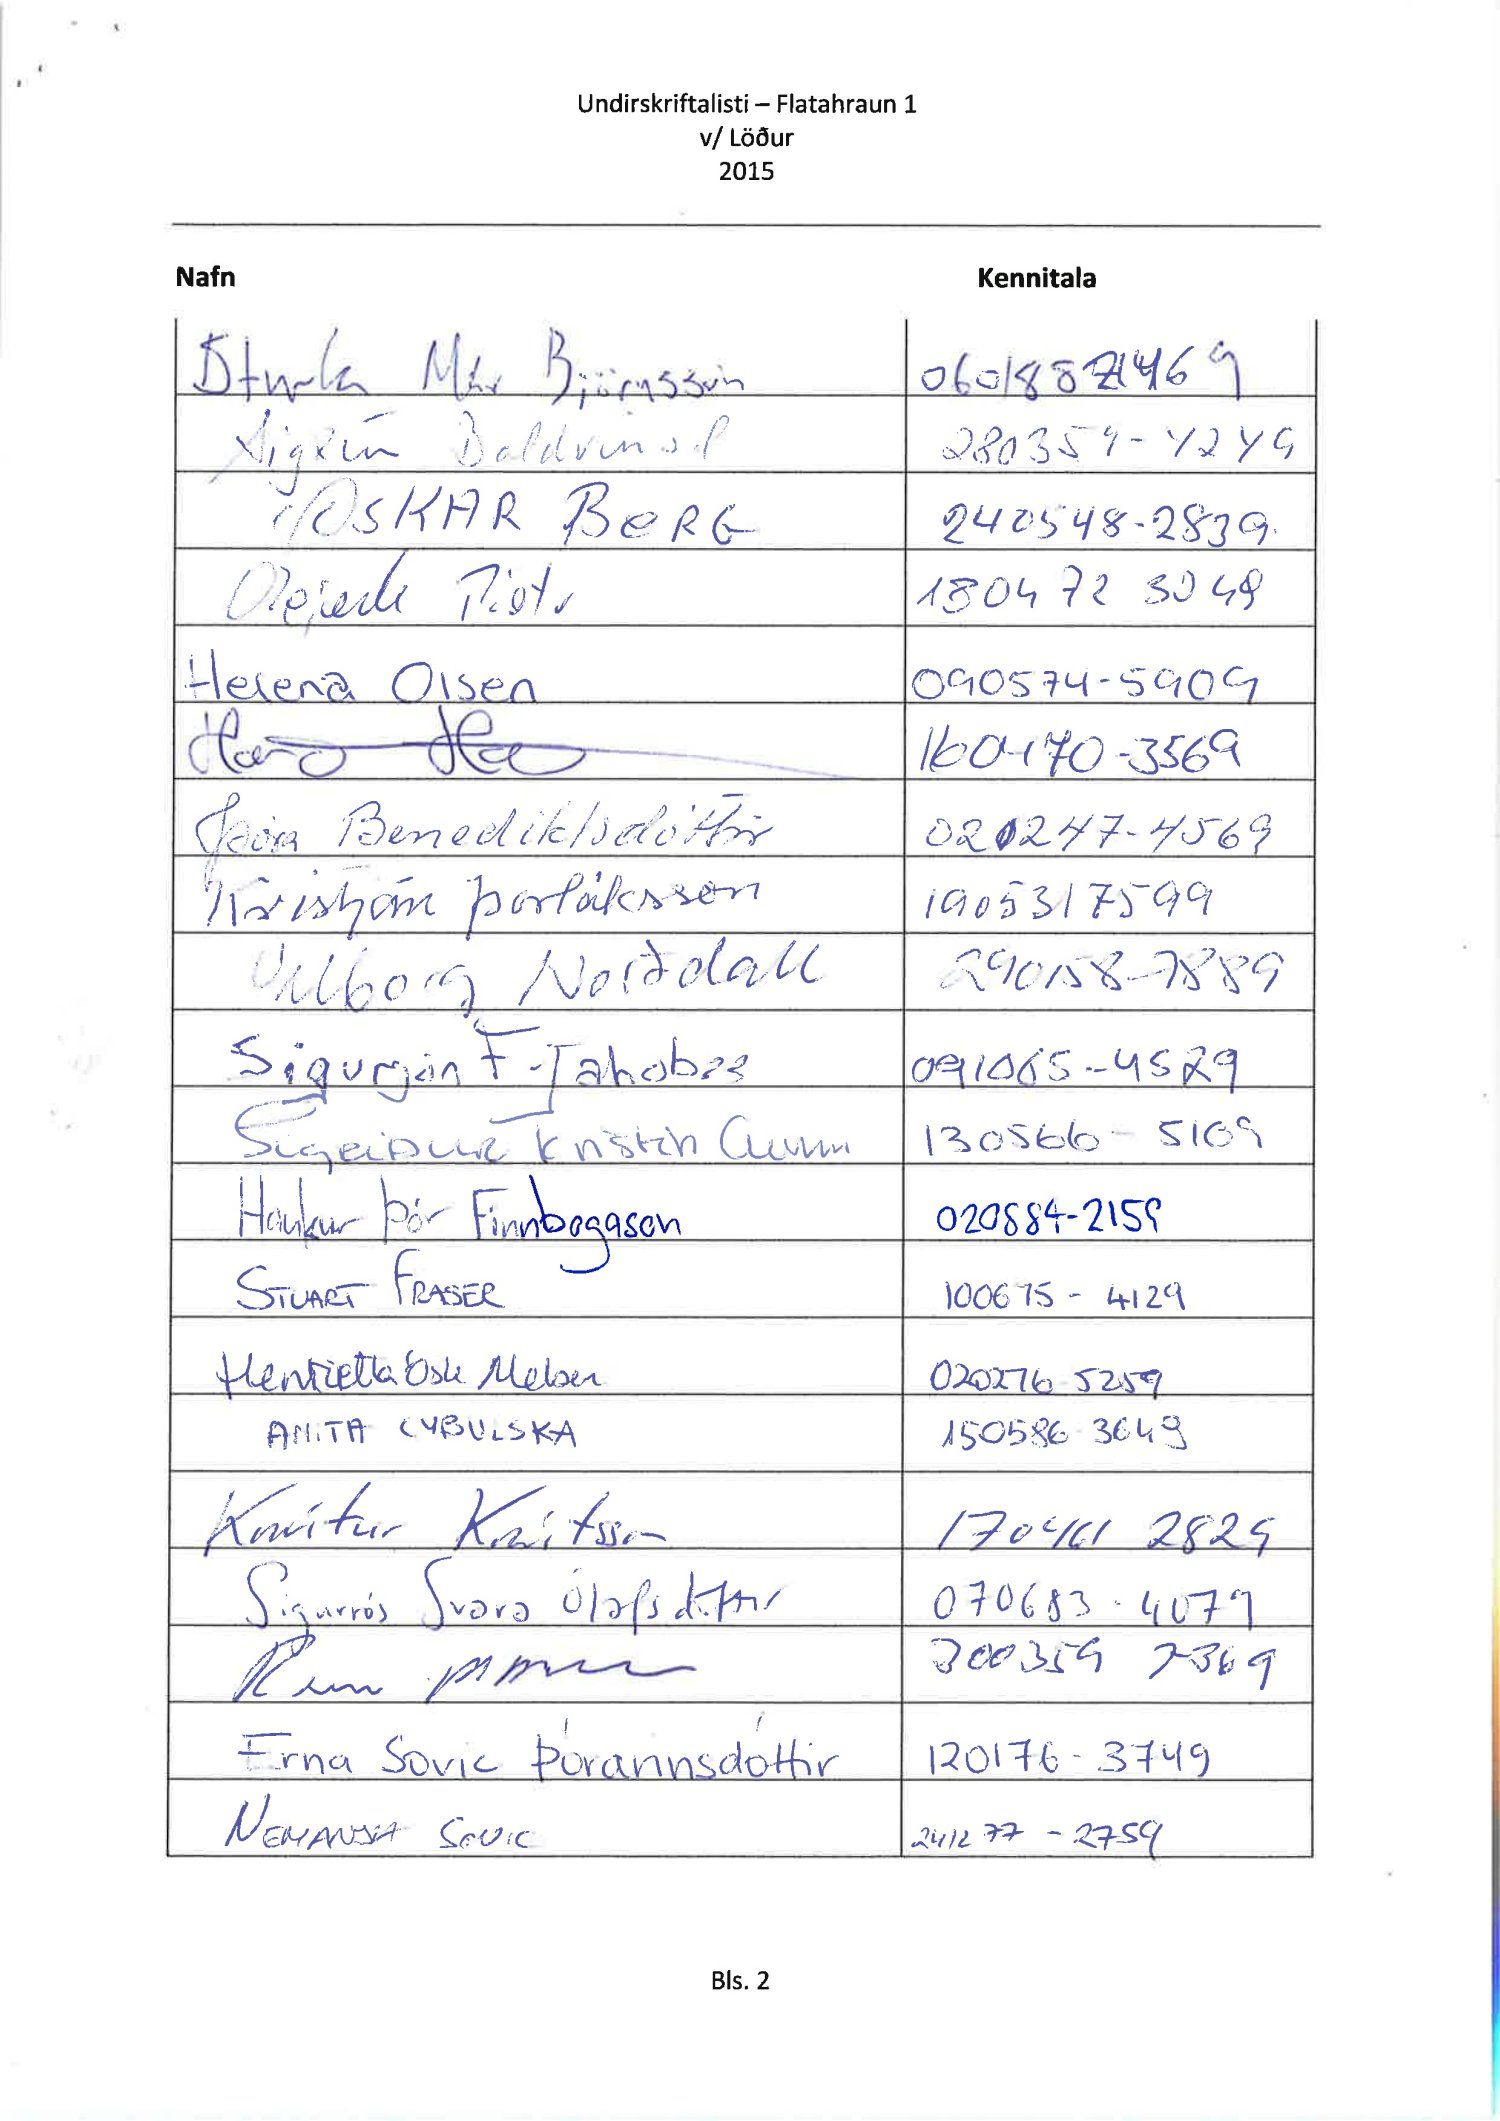 Undirskriftalisti – Flatahraun 1
v/ Löður
2015
Nafn Kennitala
Sturla Már Björnsson
Sigrún Baldvinsd 280359-4249
OSKAR BERG 240548-2839
Piotr 180472 3049
Helena Olsen 090574-5909
160170-3569
Þóra Benediktsdóttir 020247-4569
Kristján Þorláksson 190531 7599
Vilborg Norðdahl 290158-7889
Sigurjón F. Jakobss 091065-4529
Kristín 130566-5109
Haukur Þór Finnbogason 020884-2159
STUART FRASER 100675-4129
Henrietta Ósk Melsen 020276-5259
ANITA CYBULSKA 150586-3649
Knútur Knútsson 170461 2829
Sigurrós Svava Ólafsdóttir 070683-4079
300359 7369
Erna Sovic Þórannsdóttir 120176-3749
NEMANJA SOVIC 241277-2759
Bls. 2